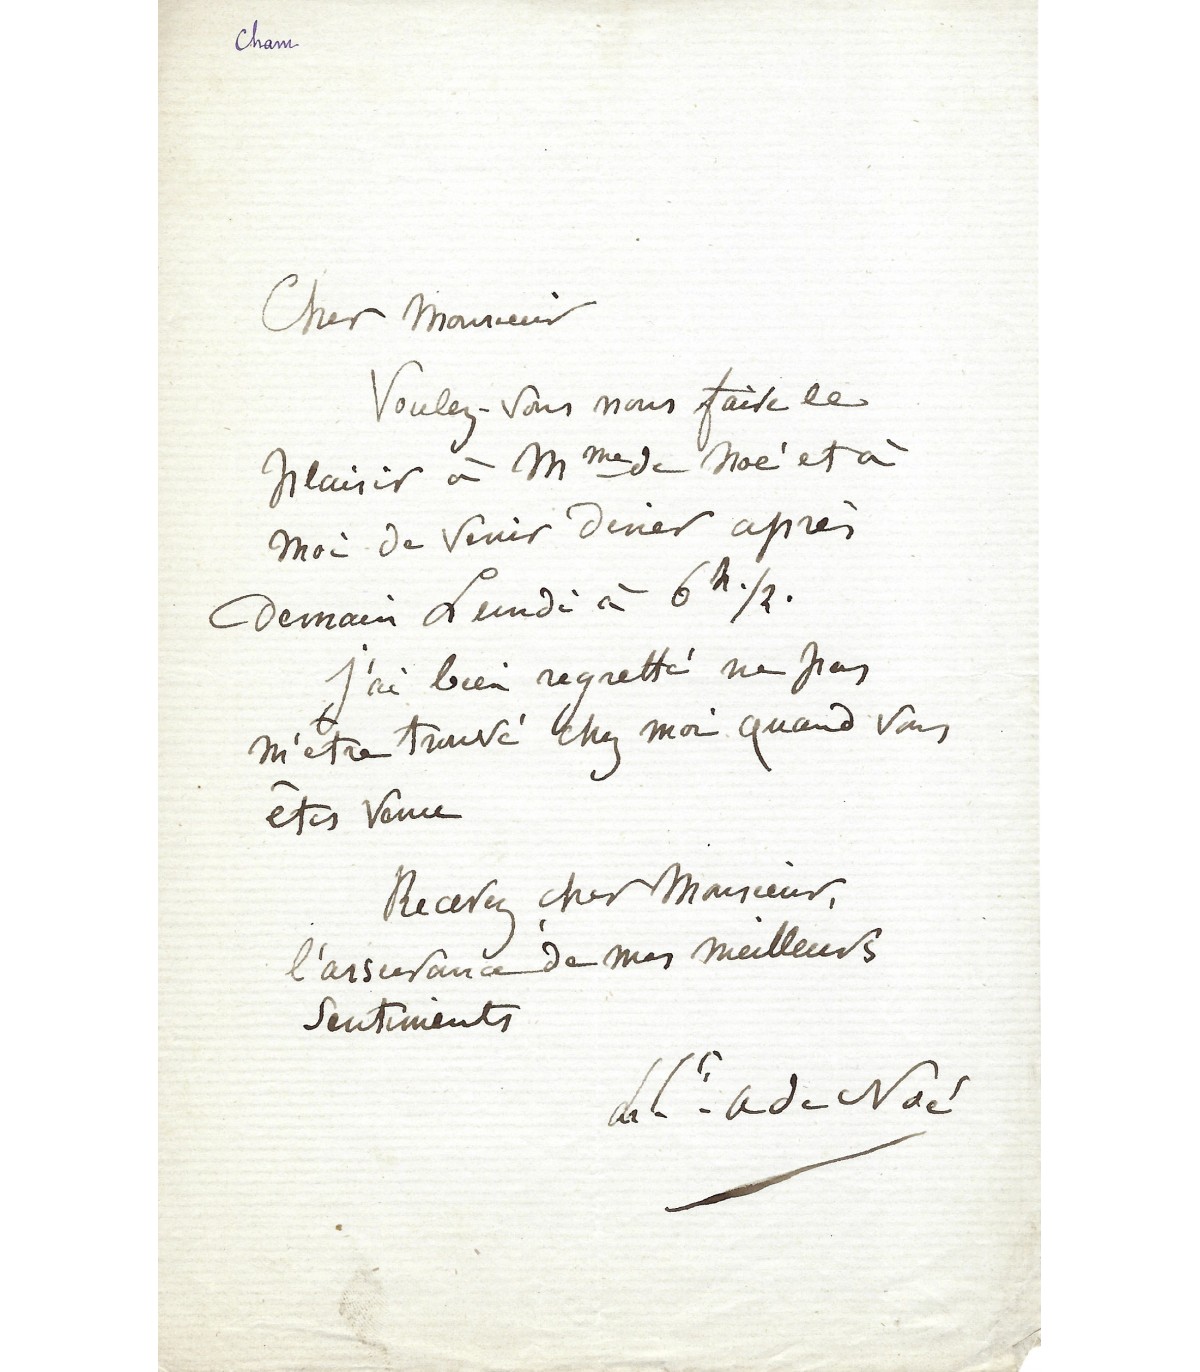 Cham
Cher Monsieur
Voulez-vous nous faire le
plaisir à Mme de Noé et à
moi de venir diner après
Demain Lundi à 6h. 1/2.
j'ai bien regretté ne pas
m'être trouvé chez moi quand vous
êtes venu
Recevez, cher Monsieur,
l'assurance de mes meilleurs
Sentiments
A de Noé